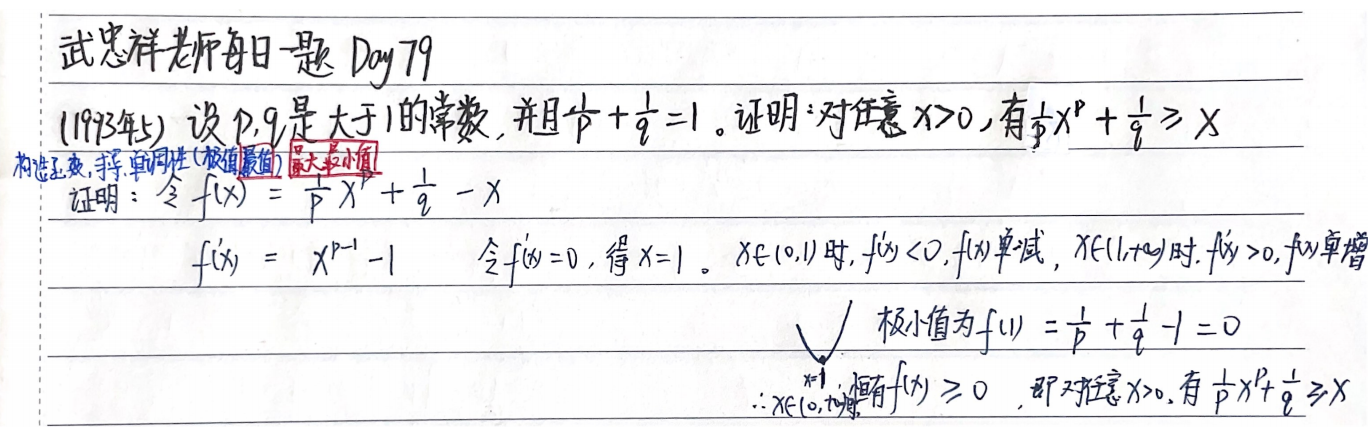 武忠祥老师每日一题 Day 79
(1993年5) 设 p,q是大于1的常数,并且1/p + 1/q = 1。证明:对任意 x>0,有1/p x^p + 1/q ≥ x
构造函数,求导,单调性(极值最值) 最大最小值
证明:令 f(x) = 1/p x^p + 1/q - x
f'(x) = x^(p-1) - 1 令f'(x)=0,得x=1。x∈(0,1)时,f'(x)<0,f(x)单减,x∈(1,+∞)时,f'(x)>0,f(x)单增
极小值为f(1) = 1/p + 1/q - 1 = 0
x=1
∴x∈(0,+∞)时恒有f(x) ≥ 0,即对任意x>0,有 1/p x^p + 1/q ≥ x